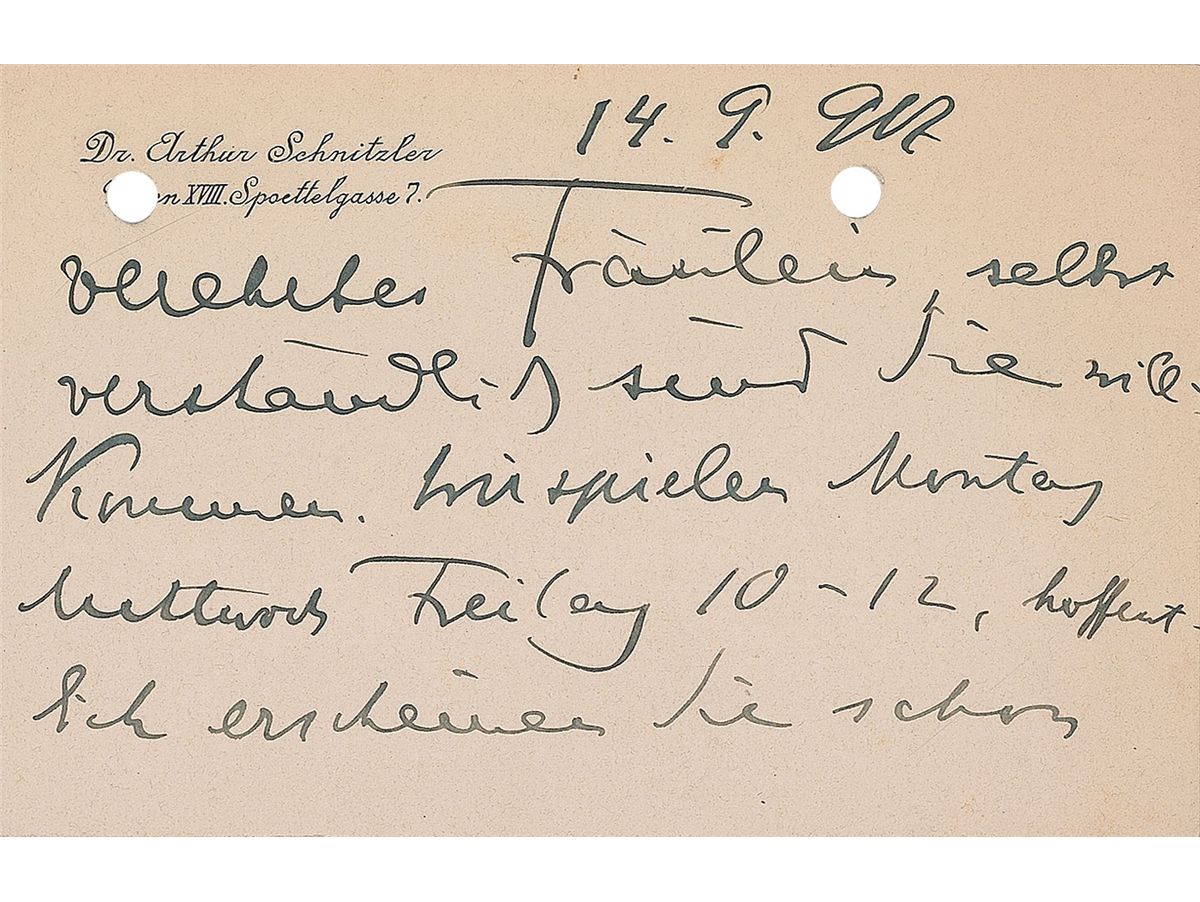 14. 9. 907
Dr. Arthur Schnitzler
Wien XVIII. Spoettelgasse 7.
verehrtes Fräulein, selbst
verständlich sind Sie will-
kommen. Wir spielen Montag
Mittwoch Freitag 10 - 12, hoffent-
lich erscheinen Sie schon